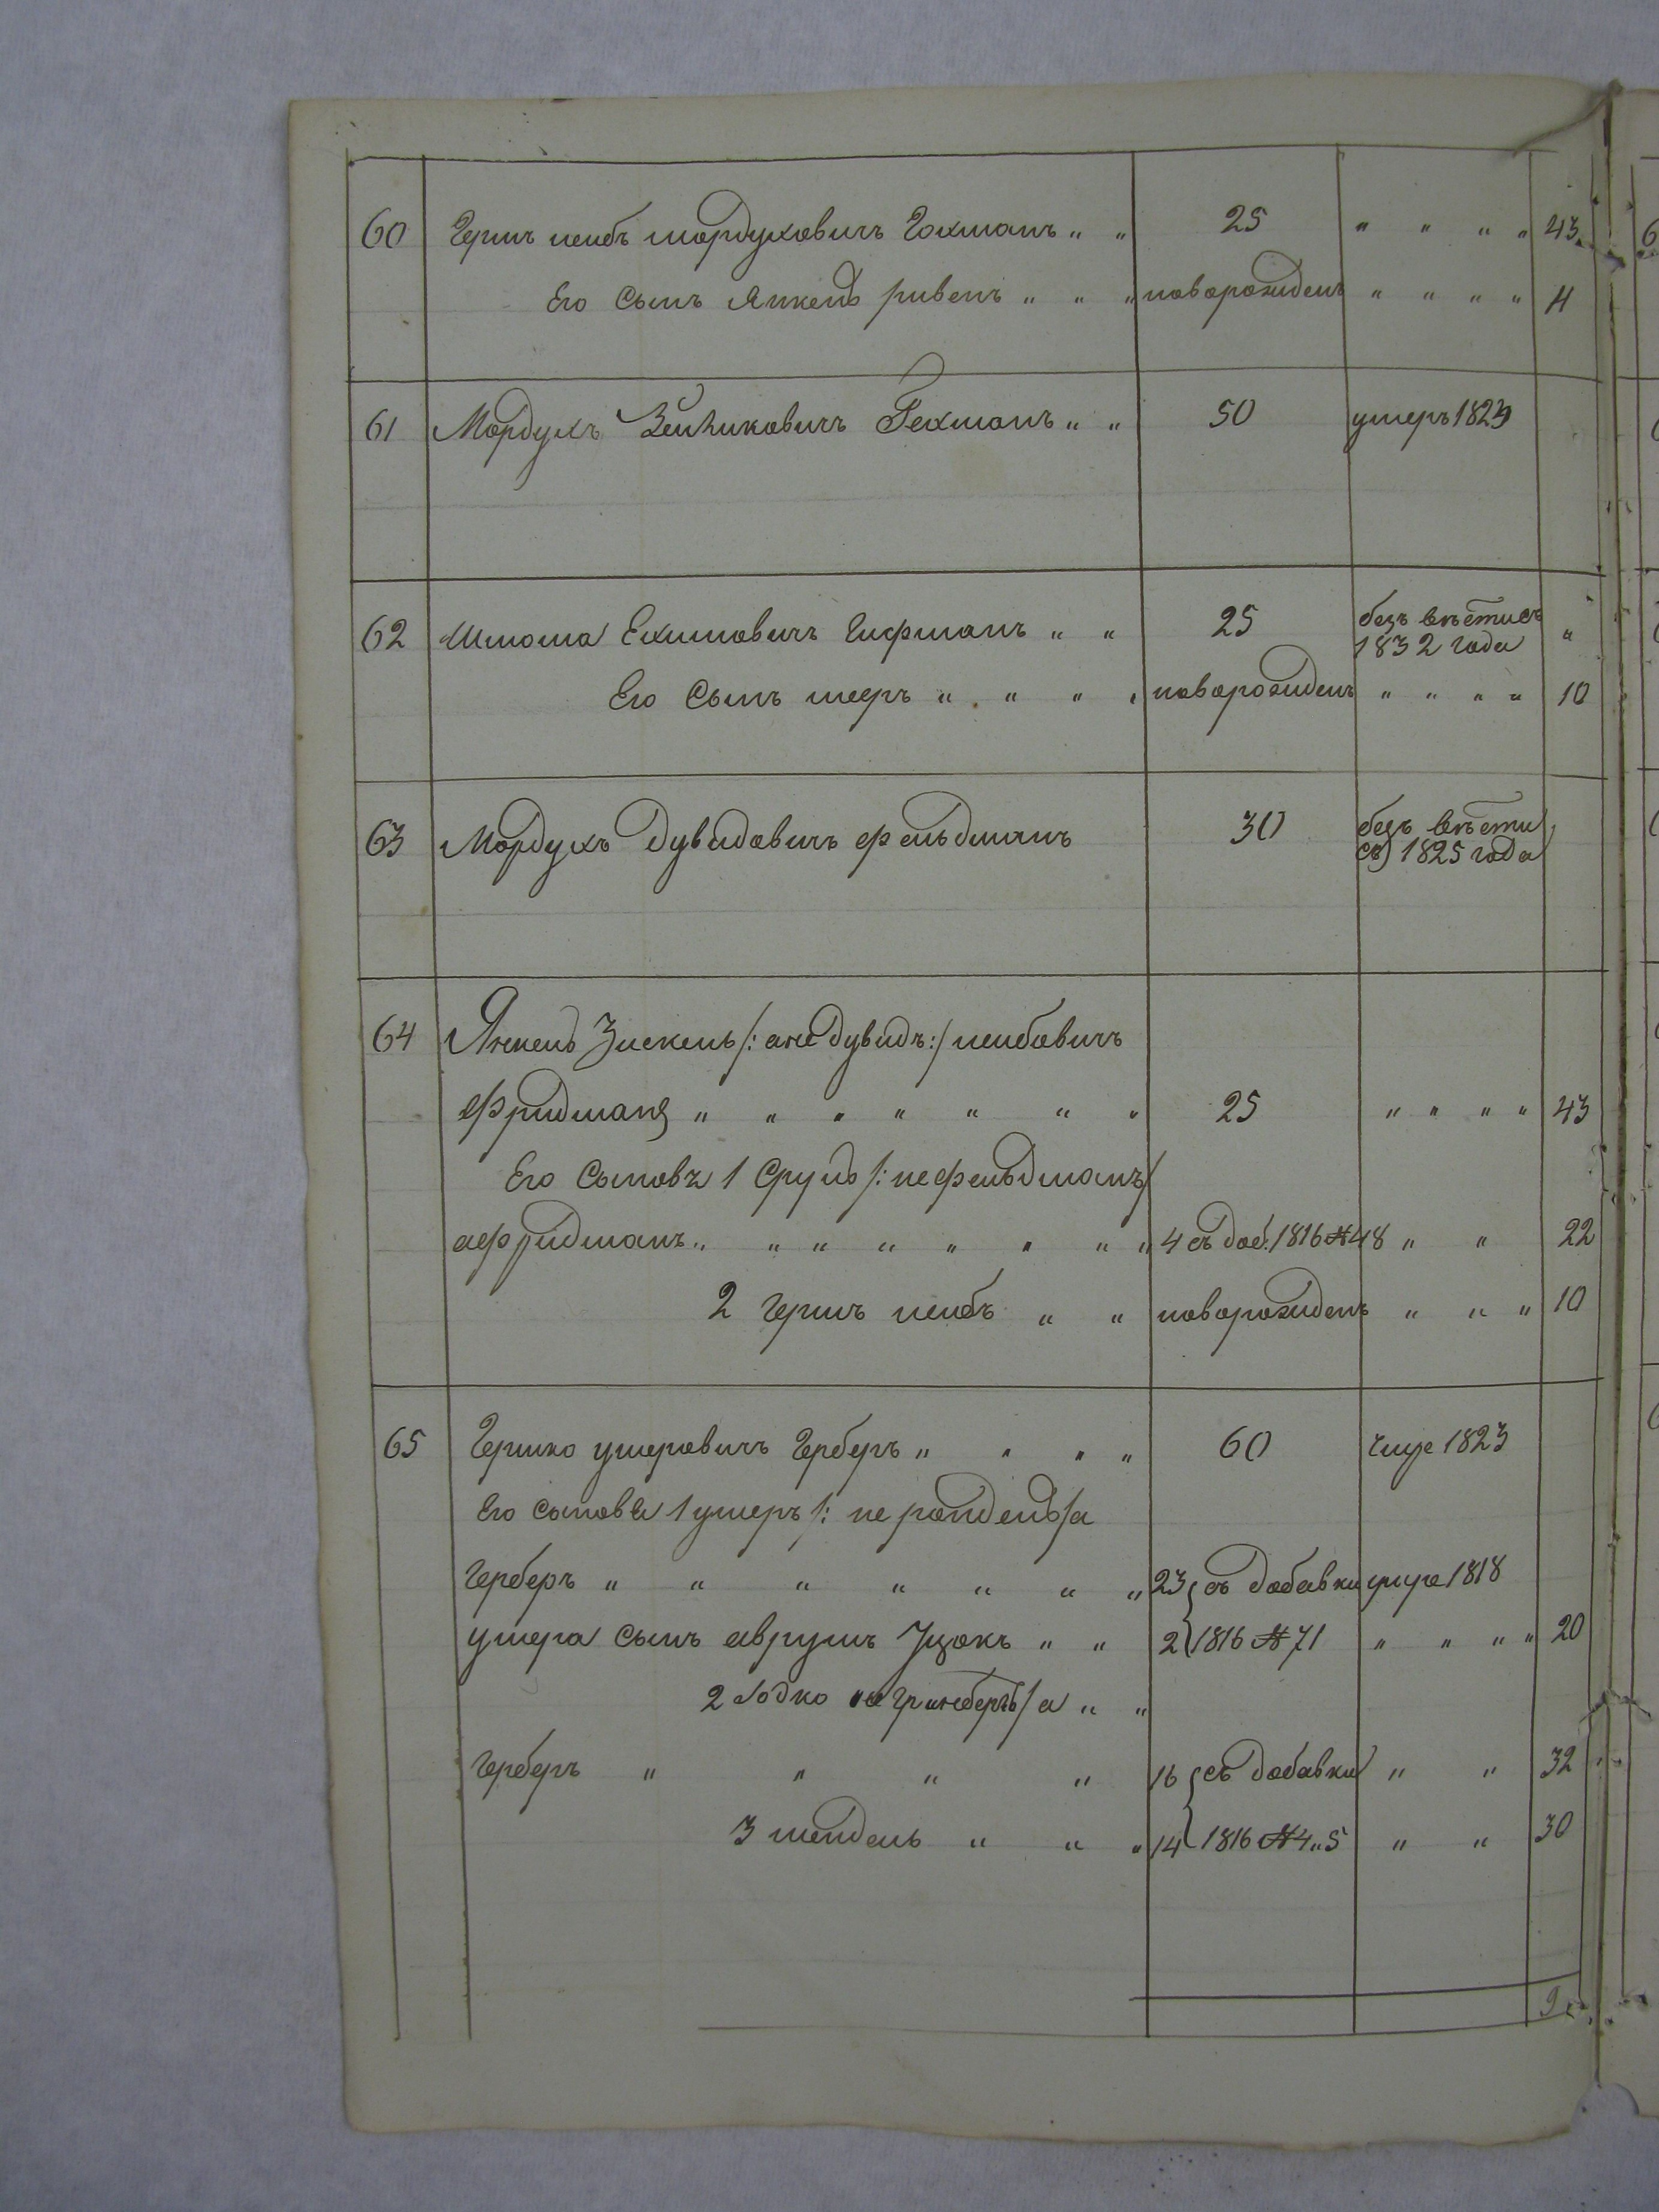 60 Гершъ лейбъ мордуховичъ Гохманъ " " 25 " " " " 43
Его Сынъ Янкель ривенъ " " " новорожденъ " " " " 11
61 Мордухъ Зейликовичъ Гехманъ " " 50 умеръ 1823
62 Шлома Ехимовичъ Гифманъ " " 25 безъ вѣсти съ 1832 года "
Его Сынъ мееръ " " " " новорожденъ " " " " 10
63 Мордухъ Дувидовичъ фельдманъ 30 безъ вѣсти съ 1825 года
64 Янкель Зискель /: а не дувидъ :/ лейбовичъ
Фридманъ " " " " " " " 25 " " " " 43
Его Сыновя 1 Сруль /: не фельдманъ/
а фридманъ " " " " " " " " 4 съ доб: 1816 № 48 " " 22
2 Гершъ лейбъ " " новорожденъ " " " 10
65 Гершко умеровичъ Герберъ " " " " 60 1823
Его сыновя 1 ушеръ /: не рейдель/ а
Герберъ " " " " " " " 23 съ добавки умре 1818
ушера сынъ аврумъ Ицокъ " " 2 1816 № 71 " " " " 20
2 не гринбергъ/ а " "
Герберъ " " " " 16 съ добавки " " 32
3 мендель " " " 14 1816 № 4 " 5 " " 30